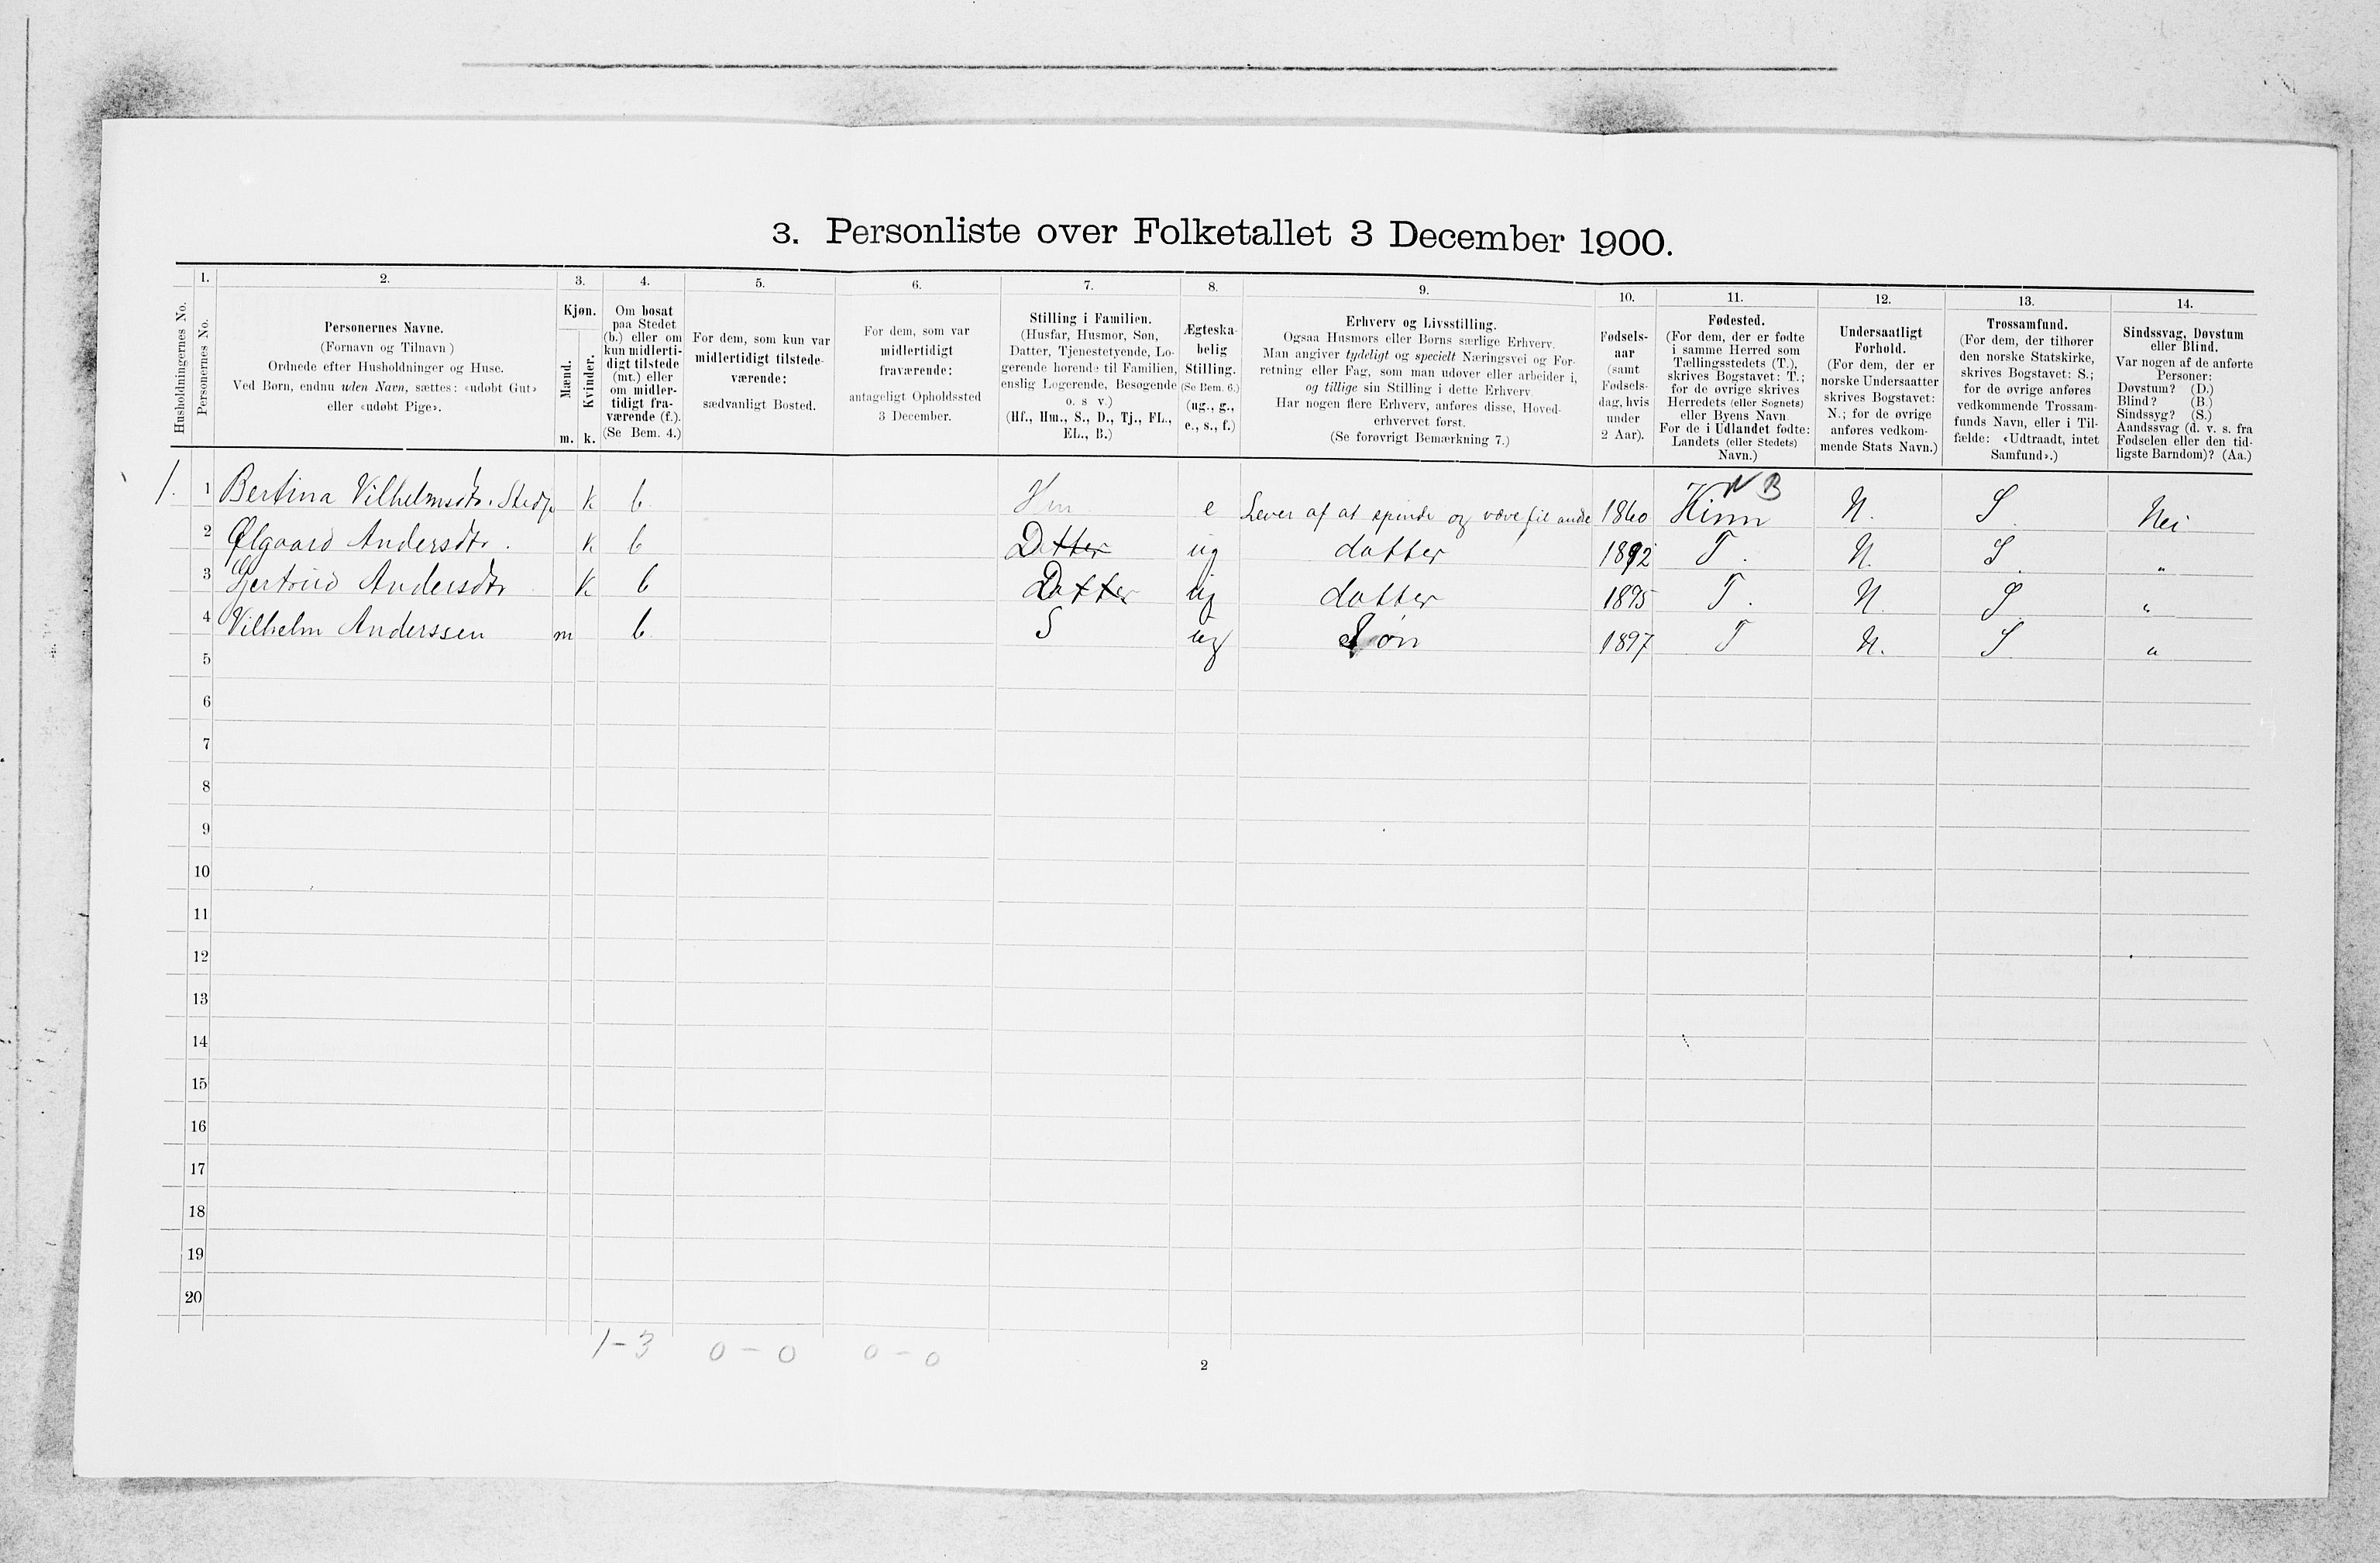 3. Personliste over Folketallet 3 December 1900.
Husholdningernes No.
1.
Personernes No.
2.
Personernes Navne.
(Fornavn og Tilnavn)
Ordnede efter Husholdninger og Huse.
Ved Børn, endnu uden Navn, sættes: «udøbt Gut»
eller «udøbt Pige».
3.
Kjøn.
Mænd.
Kvinder.
m. k.
4.
Om bosat
paa Stedet
(b.) eller om
kun midlerti-
digt tilstede
(mt.) eller
om midler-
tidigt fra-
værende (f.).
(Se Bem. 4.)
5.
For dem, som kun var
midlertidigt tilstede-
værende:
sædvanligt Bosted.
6.
For dem, som var
midlertidigt
fraværende:
antageligt Opholdssted
3 December.
7.
Stilling i Familien.
(Husfar, Husmor, Søn,
Datter, Tjenestetyende, Lo-
gerende hørende til Familien,
enslig Logerende, Besøgende
o. s. v.)
(Hf., Hm., S., D., Tj., FL.,
EL., B.)
8.
Ægteska-
belig
Stilling.
(Se Bem. 6.)
(ug., g.,
e., s., f.)
9.
Erhverv og Livsstilling.
Ogsaa Husmors eller Børns særlige Erhverv.
Man angiver tydeligt og specielt Næringsvei og For-
retning eller Fag, som man udøver eller arbeider i,
og tillige sin Stilling i dette Erhverv.
Har nogen flere Erhverv, anføres disse, Hoved-
erhvervet først.
(Se forøvrigt Bemærkning 7.)
10.
Fødsels-
aar
(samt
Fødsels-
dag, hvis
under
2 Aar).
11.
Fødested.
(For dem, der er fødte
i samme Herred som
Tællingsstedets (T.),
skrives Bogstavet: T.;
for de øvrige skrives
Herredets (eller Sognets)
eller Byens Navn.
For de i Udlandet fødte:
Landets (eller Stedets)
Navn.)
12.
Undersaatligt
Forhold.
(For dem, der er
norske Undersaatter
skrives Bogstavet:
N.; for de øvrige
anføres vedkom-
mende Stats Navn.)
13.
Trossamfund.
(For dem, der tilhører
den norske Statskirke,
skrives Bogstavet: S.;
for de øvrige anføres
vedkommende Trossam-
funds Navn, eller i Til-
fælde: «Udtraadt, intet
Samfund».)
14.
Sindssvag, Døvstum
eller Blind.
Var nogen af de anførte
Personer:
Døvstum? (D.)
Blind? (B.)
Sindssyg? (S.)
Aandssvag (d. v. s. fra
Fødselen eller den tid-
ligste Barndom)? (Aa.)
1. 1 Bertina Vilhelmsdtr. k b Hm e Lever af at spinde og væve til andre 1860 Kinn N. S. Nei
2 Ølgaard Andersdtr. k b Datter ug datter 1892 T. N. S. "
3 Gertrud Andersdtr k b Datter ug datter 1895 T. N. S. "
4 Vilhelm Anderssen m b S ug Søn 1897 T N. S. "
5
6
7
8
9
10
11
12
13
14
15
16
17
18
19
20
1-3 0-0 0-0
2